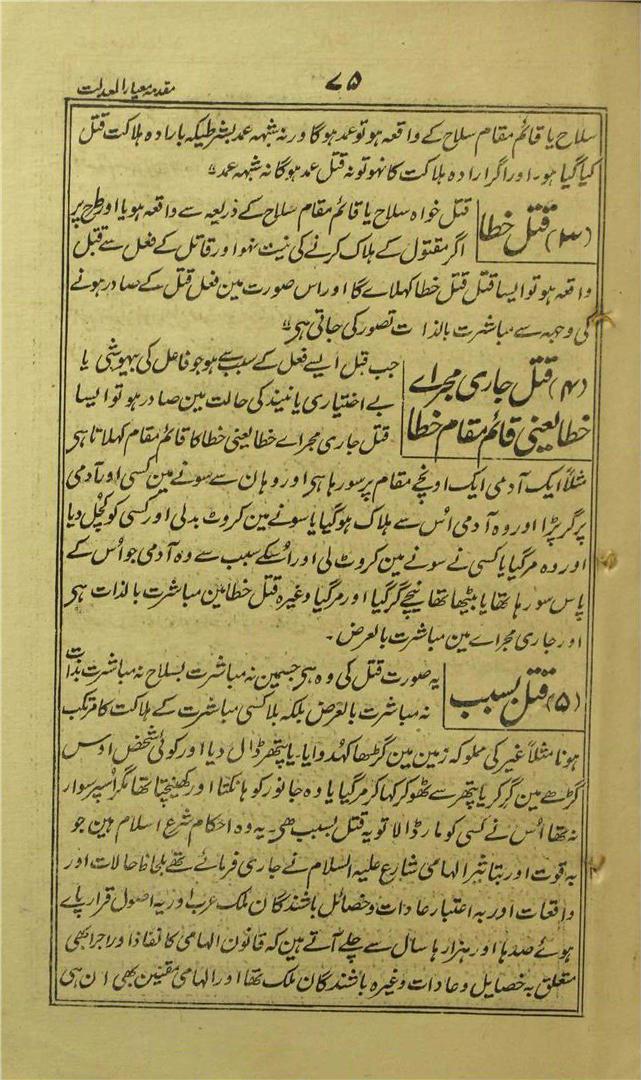 ۷۵
مقدمہ معیار المعدلت
سلاح یا قائم مقام سلاح کے واقعہ ہو تو عمد ہوگا ورنہ شبہہ عمد بشرطیکہ بارادہ ہلاکت قتل
کیا گیا ہو۔ اور اگر ارادہ ہلاکت کا نہو تو نہ قتل عمد ہوگا نہ شبہہ عمد
(۳) قتل خطا
قتل خواہ سلاح یا قائم مقام سلاح کے ذریعہ سے واقعہ ہو یا اور طرح پر
اگر مقتول کے ہلاک کرنے کی نیت نہو اور قاتل کے فعل سے قتل
واقعہ ہو تو ایسا قتل قتل خطا کہلاے گا اور اس صورت مین فعل قتل کے صادر ہونے
کی وجہہ سے مباشرت بالذات تصور کی جاتی ہی
(۴) قتل جاری مجراے
خطا یعنی قائم مقام خطا
جب قتل ایسے فعل کے سبب سے ہو جو فاعل کی بیہوشی یا
بے اختیاری یا نیند کی حالت مین صادر ہو تو ایسا
قتل جاری مجراے خطا یعنی خطا کا قائم مقام کہلاتا ہی
مثلاً ایک آدمی ایک اونچے مقام پر سو رہا ہی اور وہان سے سونے مین کسی اور آدمی
پر گر پڑا اور وہ آدمی اُس سے ہلاک ہوگیا یا سونے مین کروٹ بدلی اور کسی کو کُچل دیا
اور وہ مر گیا یا کسی نے سونے مین کروٹ لی اور اُسکے سبب سے وہ آدمی جو اُس کے
پاس سو رہا تھا یا بیٹھا تھا نیچے گر گیا اور مر گیا وغیرہ قتل خطا مین مباشرت بالذات ہی
اور جاری مجراے مین مباشرت بالعرض۔
(۵) قتل بسبب
یہ صورت قتل کی وہ ہی جسمین نہ مباشرت بسلاح نہ مباشرت بذات
نہ مباشرت بالعرض بلکہ بلا کسی مباشرت کے ہلاکت کا مرتکب
ہونا مثلاً غیر کی مملوکہ زمین مین گڑھا کھُدوایا۔ یا پتھر ڈال دیا اور کوئی شخص اوس
گڑھے مین گر کر یا پتھر سے ٹھوکر کھا کر مر گیا یا وہ جانور کو ہانکتا اور کھینچتا تھا مگر اُسپر سوار
نہ تھا اُس نے کسی کو مار ڈالا تو یہ قتل بسبب ہی۔ یہ وہ احکام شرع اسلام ہین جو
بہ قوت اور بتاثیر الہامی شارع علیہ السلام نے جاری فرمائے تھے بلحاظ حالات اور
واقعات اور بہ اعتبار عادات و خصائل باشندگان ملک عرب اور یہ اصول قرار پاے
ہوئے صدہا اور ہزارہا سال سے چلے آتے ہین کہ قانون الہامی کا نفاذ اور اجرا بھی
متعلق بہ خصایل و عادات وغیرہ باشندگان ملک تھا اور الہامی مقنین بھی ان ہی